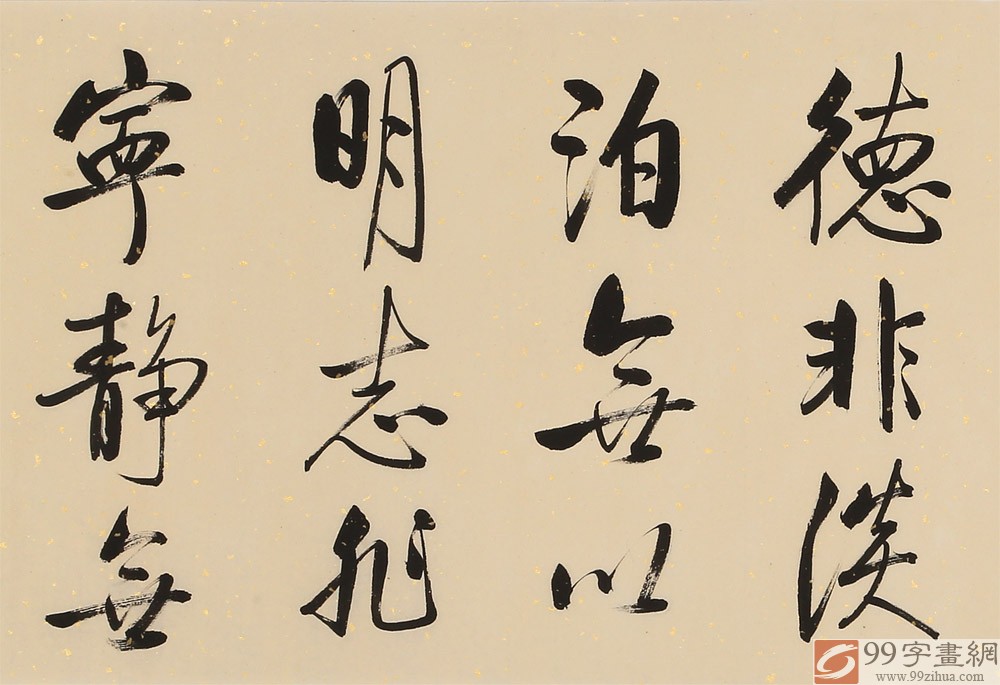 德非淡
泊無以
明志非
寧静無
99字畫網
www.99zihua.com